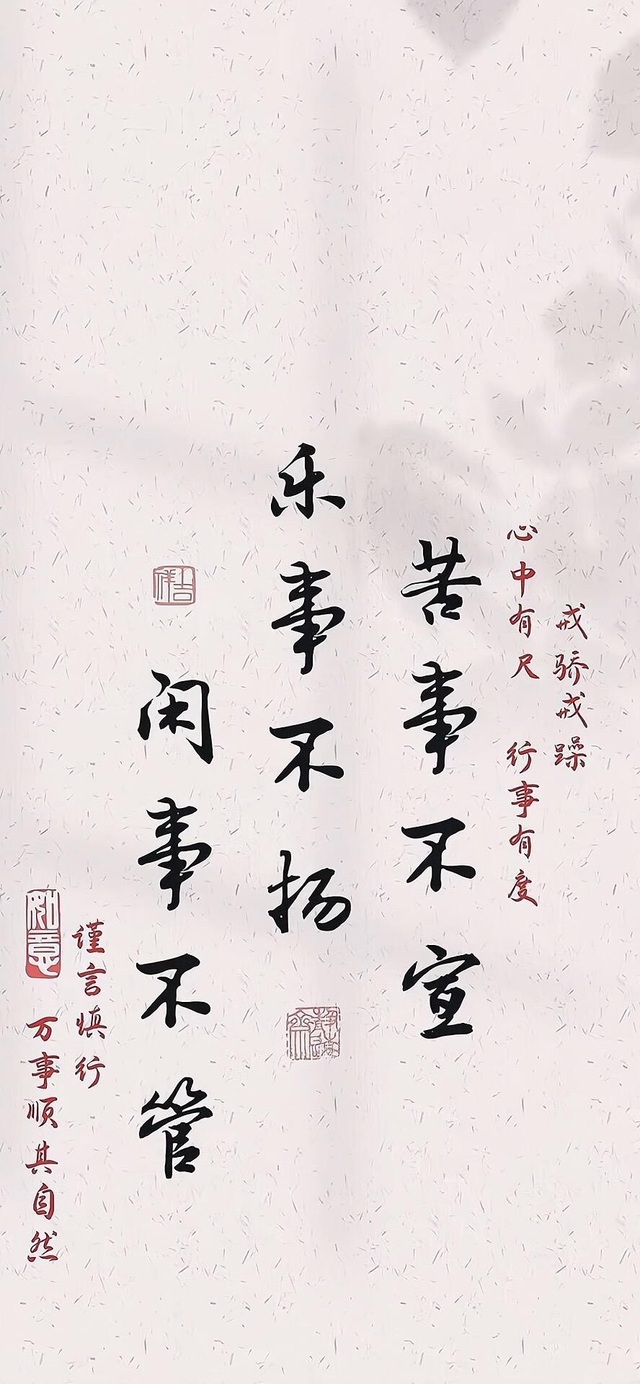 戒骄戒躁
心中有尺 行事有度
苦事不宣
乐事不扬
闲事不管
谨言慎行
如意
万事顺其自然